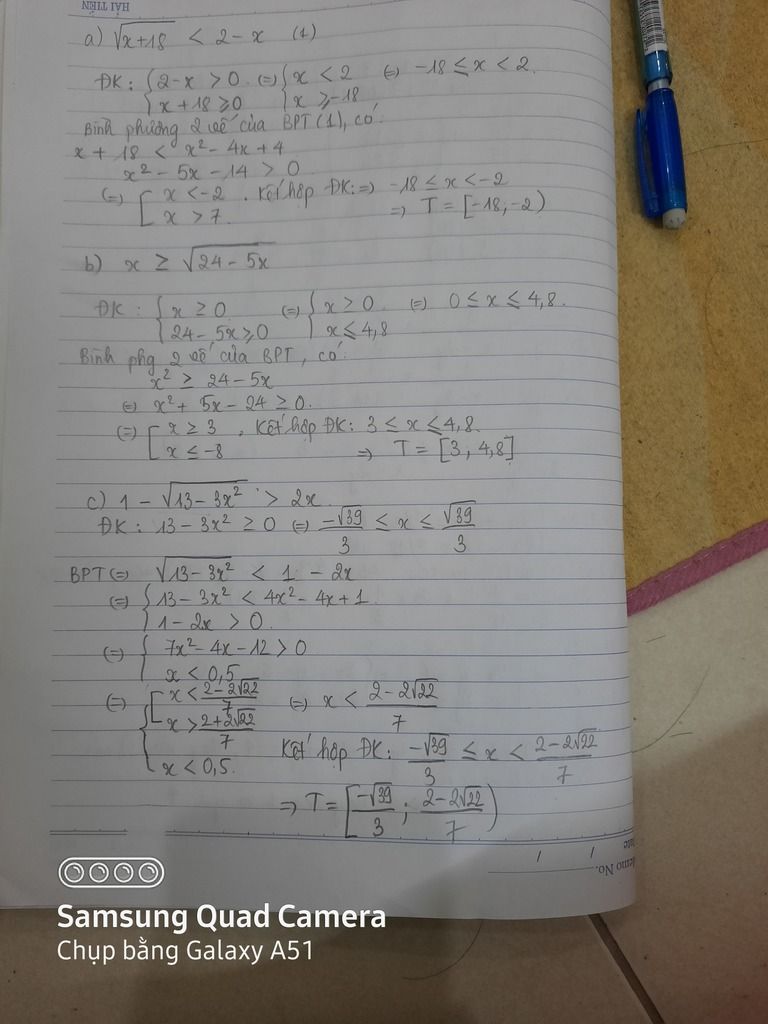 HẢI TIẾN
a) √(x+18) < 2 - x (1)
ĐK: { 2-x > 0 (=) { x < 2 (=) -18 ≤ x < 2.
{ x + 18 ≥ 0 { x ≥ -18
Bình phương 2 vế của BPT(1), có:
x + 18 < x² - 4x + 4
x² - 5x - 14 > 0
(=) [ x < -2 . Kết hợp ĐK: => -18 ≤ x < -2
[ x > 7. => T = [-18; -2)
b) x ≥ √(24 - 5x)
ĐK: { x ≥ 0 (=) { x ≥ 0 (=) 0 ≤ x ≤ 4,8.
{ 24 - 5x ≥ 0 { x ≤ 4,8
Bình phg 2 vế của BPT, có:
x² ≥ 24 - 5x
(=) x² + 5x - 24 ≥ 0.
(=) [ x ≥ 3 , Kết hợp ĐK: 3 ≤ x ≤ 4,8.
[ x ≤ -8 => T = [3, 4,8]
c) 1 - √(13 - 3x²) > 2x.
ĐK: 13 - 3x² ≥ 0 (=) -√39/3 ≤ x ≤ √39/3
BPT (=) √(13 - 3x²) < 1 - 2x
(=) { 13 - 3x² < 4x² - 4x + 1
{ 1 - 2x > 0.
(=) { 7x² - 4x - 12 > 0
{ x < 0,5
(=) { [ x < (2 - 2√22)/7 (=) x < (2 - 2√22)/7
[ x > (2 + 2√22)/7
{ x < 0,5. Kết hợp ĐK: -√39/3 ≤ x < (2 - 2√22)/7
=> T = [-√39/3 ; (2 - 2√22)/7)
/ /
No.
Samsung Quad Camera
Chụp bằng Galaxy A51